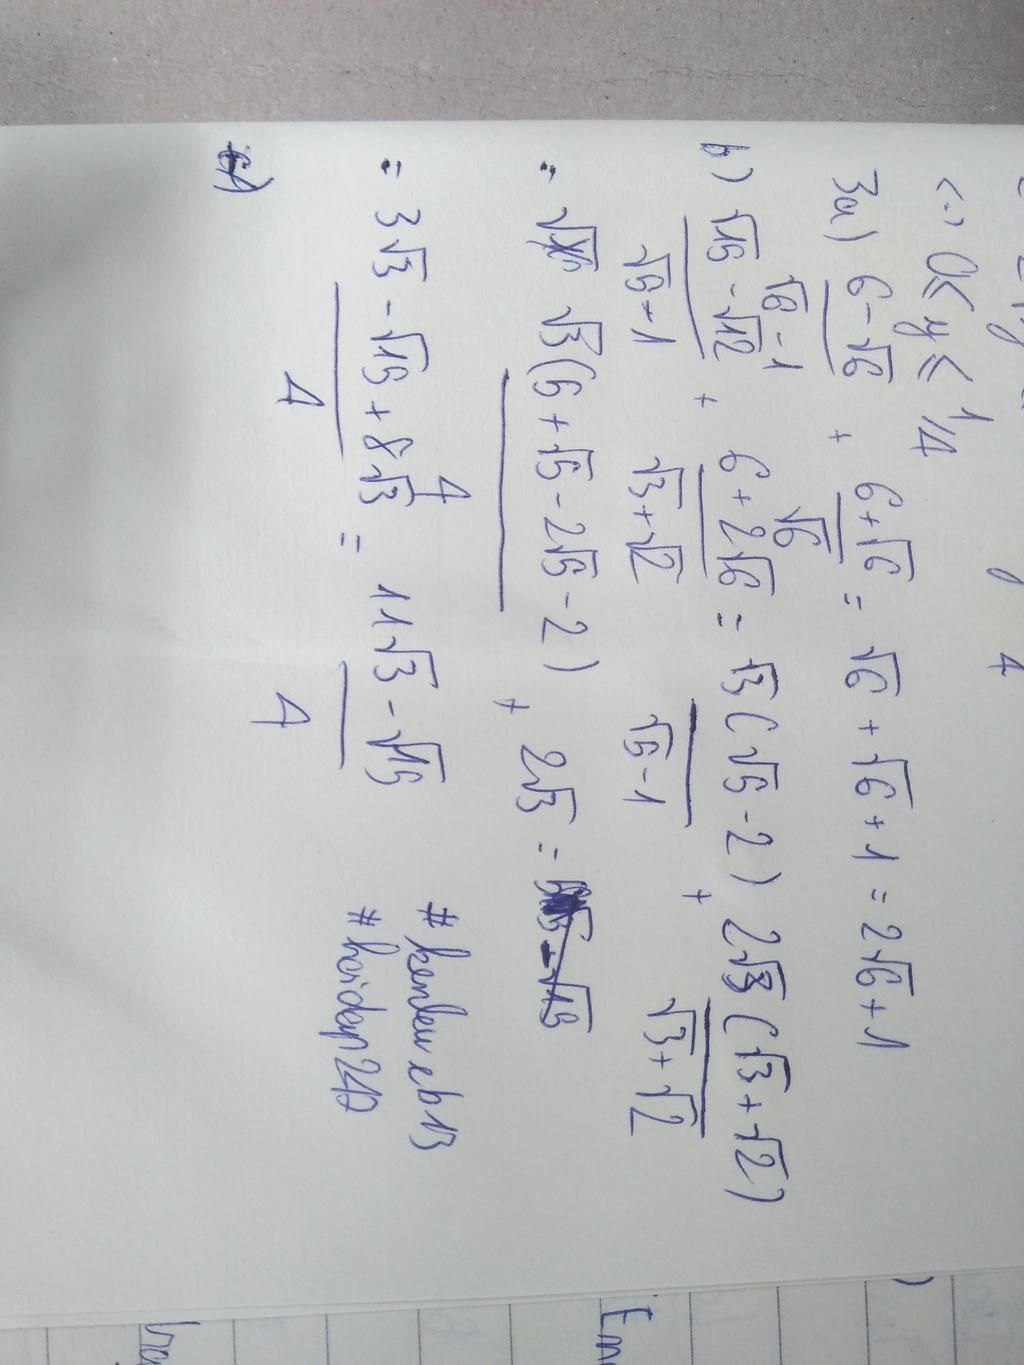 <=> 0 ≤ y ≤ 1/4
3a) (6-√6)/(√6-1) + (6+√6)/√6 = √6 + √6 + 1 = 2√6 + 1
b) (√15 - √12)/(√5 - 1) + (6 + 2√6)/(√3 + √2) = √3(√5 - 2)/(√5 - 1) + 2√3(√3 + √2)/(√3 + √2)
= √3(5 + √5 - 2√5 - 2)/4 + 2√3 =
= (3√3 - √15 + 8√3)/4 = (11√3 - √15)/4
#hoidap247